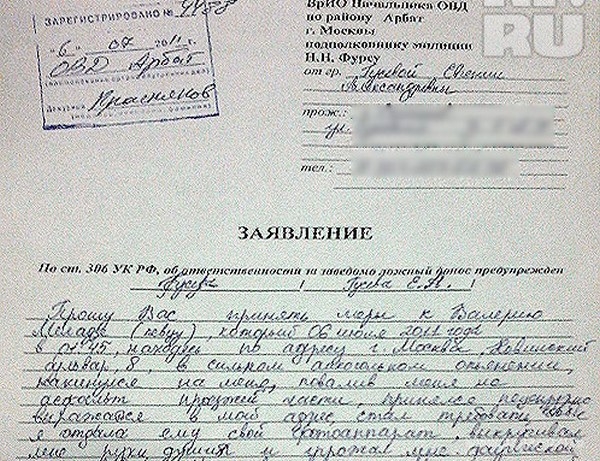 ЗАРЕГИСТРИРОВАНО №
"6" 07 2011 г.
ОВД Арбат
Дежурный
ВрИО Начальника ОВД
по району Арбат
г. Москвы
подполковнику милиции
Н.Н. Фурсу
от гр. Гусевой Евгении
Александровны
прож.:
тел.:
RU
ЗАЯВЛЕНИЕ
По ст. 306 УК РФ, об ответственности за заведомо ложный донос предупрежден
/ Гусева Е.А. /
Прошу Вас принять меры к Валерию
Меладзе (певцу), который 06 июля 2011 года
в 04.45, находясь по адресу г. Москва, Новинский
бульвар, 8, в сильном алкогольном опьянении,
накинулся на меня, повалив меня на
асфальт проезжей части, принялся нецензурно
выражаться в мой адрес, стал требовать чтобы
я отдала ему свой фотоаппарат, выкручивал
мне руки, душил и угрожал мне физической